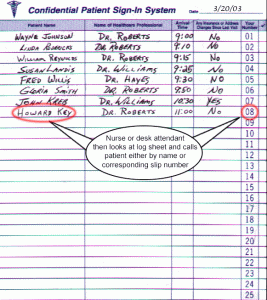 Confidential Patient Sign-In System Date 3/20/03
Patient Name Name of Healthcare Professional Arrival Time Any Insurance or Address Changes Since Last Visit Your Number
WAYNE JOHNSON DR. ROBERTS 9:00 No 01
LINDA DR. ROBERTS 9:10 No 02
WILLIAM REYNOLDS DR. ROBERTS 9:15 No 03
SUSAN LANDIS DR. WILLIAMS 9:25 No 04
FRED WILLIS DR. HAYES 9:30 No 05
GLORIA SMITH DR. ROBERTS 9:50 No 06
JOHN KREB DR. WILLIAMS 10:30 YES 07
HOWARD KEY DR. ROBERTS 11:00 No 08
09
10
11
12
13
Nurse or desk attendant
then looks at log sheet and calls
patient either by name or
corresponding slip number
14
15
16
17
18
19
20
21
22
23
24
25